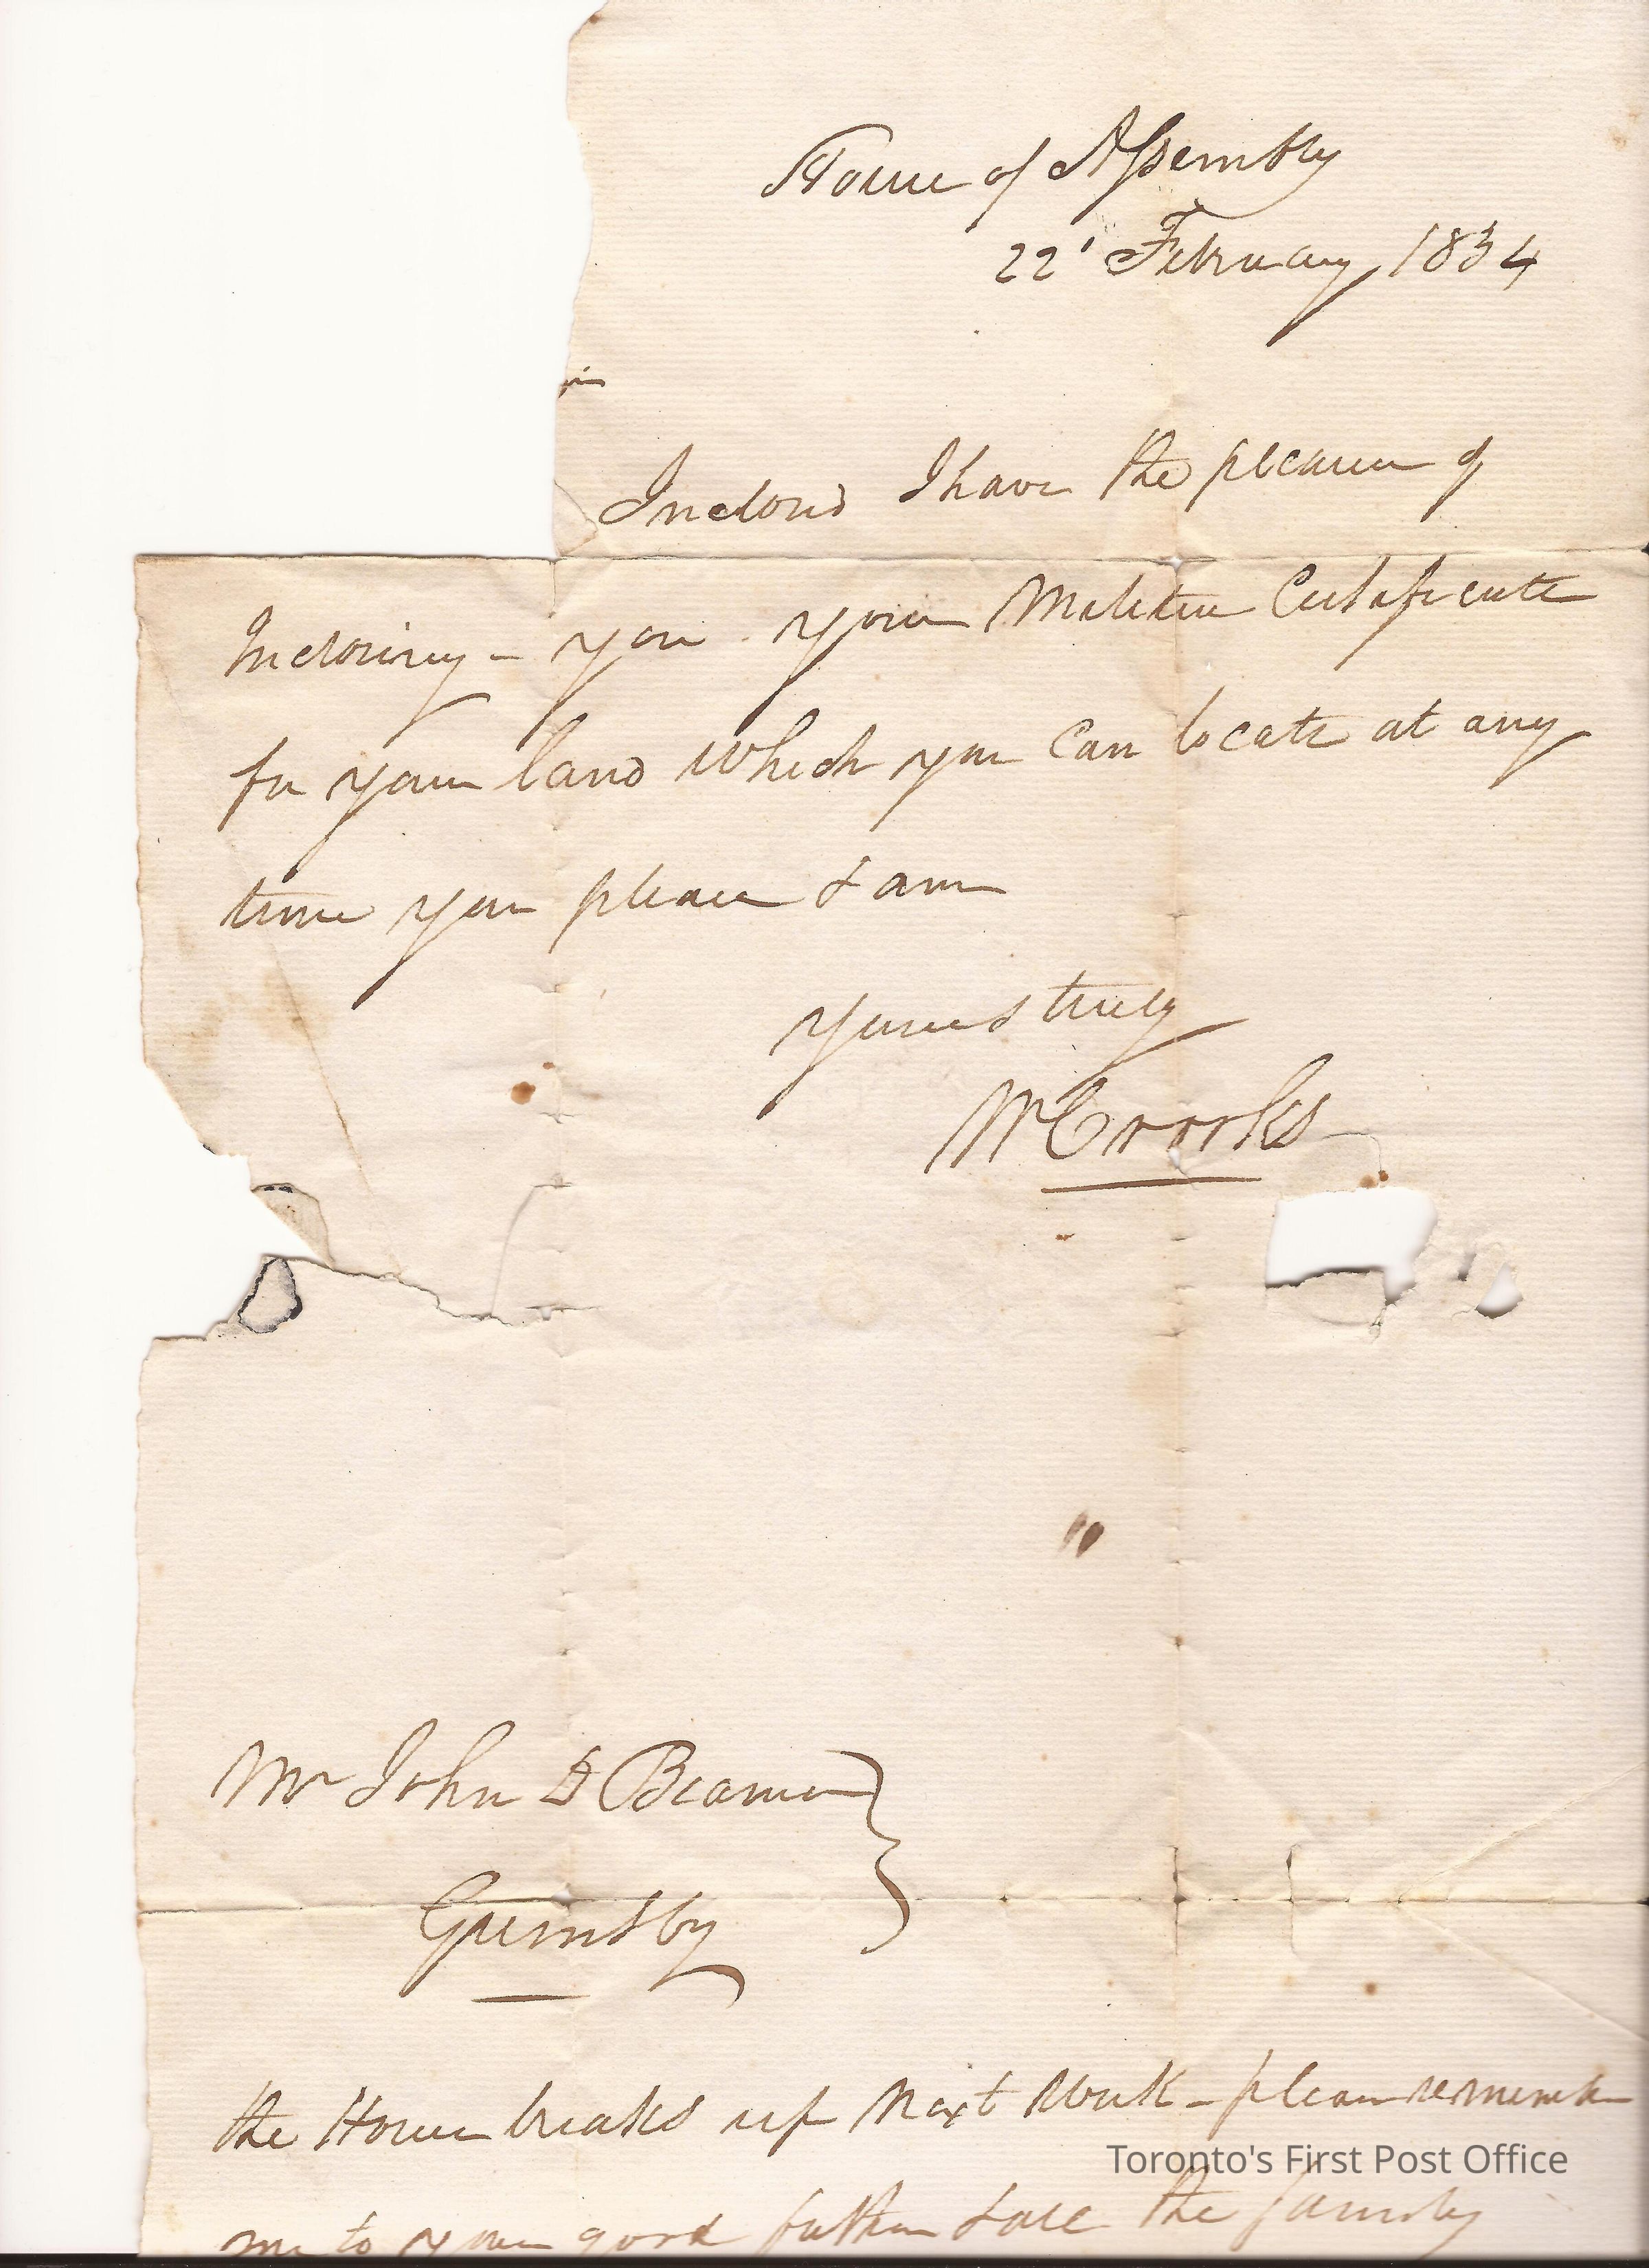 House of Assembly
22' February 1834
Inclosed I have the pleasure of
Inclosing - you your Militia Certificate
for your land which you can locate at any
time you please & am
Yours truly
W Crooks
Mr John D Beamer
Grimsby
the House breaks up next Week - please remember
me to your good father & all the family
Toronto's First Post Office